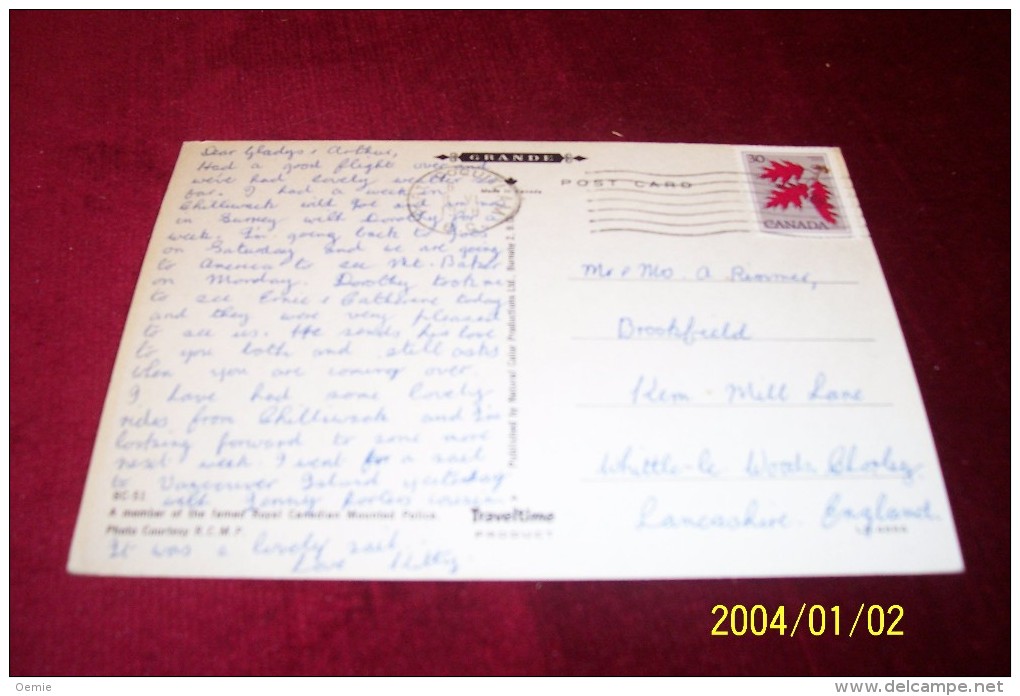 Dear Gladys & Arthur,
Had a good flight over and
we've had lovely weather so
far. I had a week in
Chilliwack with Joe and am now
in Burney with Dorothy for a
week. I'm going back to Joe's
on Saturday and we are going
to America to see Mt. Baker
on Monday. Dorothy took me
to see Ernie & Catherine today
and they were very pleased
to see us. He sends his love
to you both and still asks
when you are coming over.
I have had some lovely
rides from Chilliwack and I'm
looking forward to some more
next week. I went for a sail
to Vancouver Island yesterday
with Jenny
It was a lovely sail.
Love Kitty
BC-51
A member of the famed Royal Canadian Mounted Police.
Photo Courtesy R.C.M.P.
GRANDE
Made in Canada
POST CARD
Published by Natural Color Productions Ltd., Burnaby 2, B.C.
Traveltime
PRODUCT
30
CANADA
Mr & Mrs. A Rimmer,
Brookfield
Kem-Mill Lane
Whittle-le Woods Chorley.
Lancashire. England.
2004/01/02
Oemie
www.delcampe.net